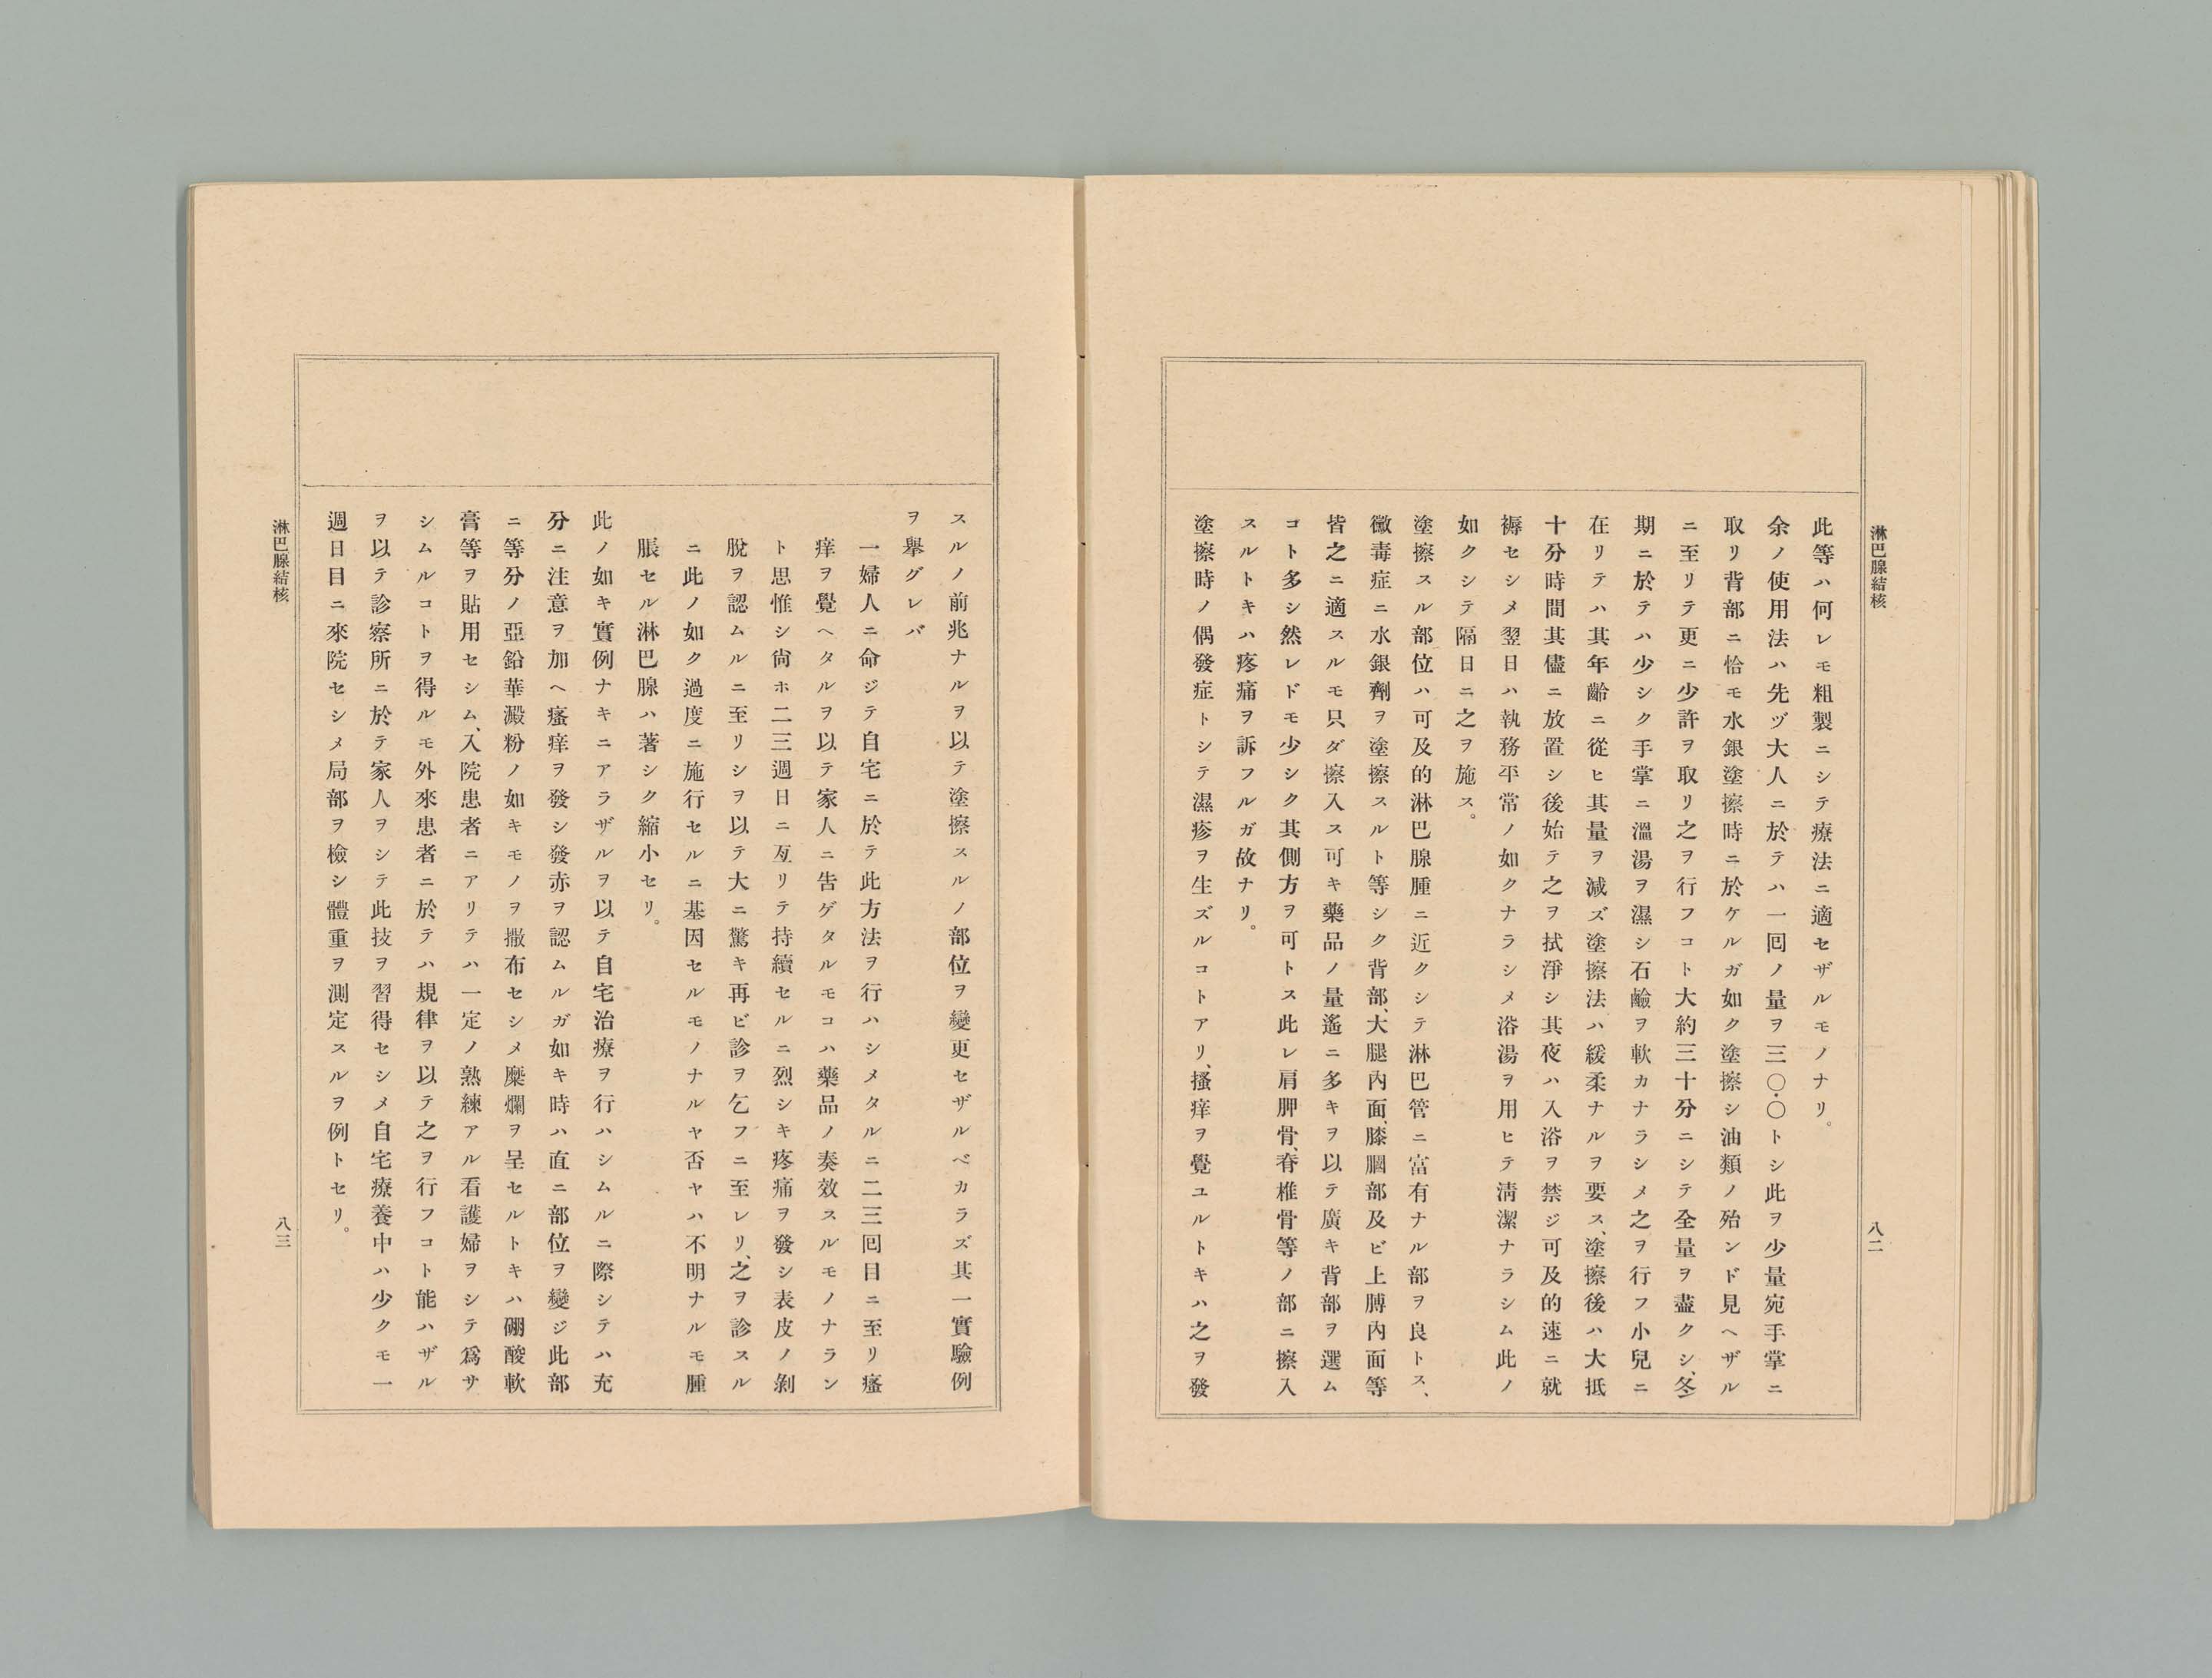 淋巴腺結核
八二
此等ハ何レモ粗製ニシテ療法ニ適セザルモノナリ。
余ノ使用法ハ先ヅ大人ニ於テハ一回ノ量ヲ三〇.〇トシ此ヲ少量宛手掌ニ
取リ背部ニ恰モ水銀塗擦時ニ於ケルガ如ク塗擦シ油類ノ殆ンド見ヘザル
ニ至リテ更ニ少許ヲ取リ之ヲ行フコト大約三十分ニシテ全量ヲ盡クシ、冬
期ニ於テハ少シク手掌ニ溫湯ヲ濕シ石鹼ヲ軟カナラシメ之ヲ行フ小兒ニ
在リテハ其年齡ニ從ヒ其量ヲ減ズ塗擦法ハ緩柔ナルヲ要ス、塗擦後ハ大抵
十分時間其儘ニ放置シ後始テ之ヲ拭淨シ其夜ハ入浴ヲ禁ジ可及的速ニ就
褥セシメ翌日ハ執務平常ノ如クナラシメ浴湯ヲ用ヒテ淸潔ナラシム此ノ
如クシテ隔日ニ之ヲ施ス。
塗擦スル部位ハ可及的淋巴腺腫ニ近クシテ淋巴管ニ富有ナル部ヲ良トス、
黴毒症ニ水銀劑ヲ塗擦スルト等シク背部、大腿內面、膝膕部及ビ上膊內面等
皆之ニ適スルモ只ダ擦入ス可キ藥品ノ量遙ニ多キヲ以テ廣キ背部ヲ選ム
コト多シ然レドモ少シク其側方ヲ可トス此レ肩胛骨、脊椎骨等ノ部ニ擦入
スルトキハ疼痛ヲ訴フルガ故ナリ。
塗擦時ノ偶發症トシテ濕疹ヲ生ズルコトアリ、搔痒ヲ覺ユルトキハ之ヲ發
スルノ前兆ナルヲ以テ塗擦スルノ部位ヲ變更セザルベカラズ其一實驗例
ヲ擧グレバ
一婦人ニ命ジテ自宅ニ於テ此方法ヲ行ハシメタルニ二三回目ニ至リ瘙
痒ヲ覺ヘタルヲ以テ家人ニ吿ゲタルモコハ藥品ノ奏效スルモノナラン
ト思惟シ尙ホ二三週日ニ亙リテ持續セルニ烈シキ疼痛ヲ發シ表皮ノ剝
脫ヲ認ムルニ至リシヲ以テ大ニ驚キ再ビ診ヲ乞フニ至レリ、之ヲ診スル
ニ此ノ如ク過度ニ施行セルニ基因セルモノナルヤ否ヤハ不明ナルモ腫
脹セル淋巴腺ハ著シク縮小セリ。
此ノ如キ實例ナキニアラザルヲ以テ自宅治療ヲ行ハシムルニ際シテハ充
分ニ注意ヲ加ヘ瘙痒ヲ發シ發赤ヲ認ムルガ如キ時ハ直ニ部位ヲ變ジ此部
ニ等分ノ亞鉛華澱粉ノ如キモノヲ撒布セシメ糜爛ヲ呈セルトキハ硼酸軟
膏等ヲ貼用セシム、入院患者ニアリテハ一定ノ熟練アル看護婦ヲシテ爲サ
シムルコトヲ得ルモ外來患者ニ於テハ規律ヲ以テ之ヲ行フコト能ハザル
ヲ以テ診察所ニ於テ家人ヲシテ此技ヲ習得セシメ自宅療養中ハ少クモ一
週日目ニ來院セシメ局部ヲ檢シ體重ヲ測定スルヲ例トセリ。
淋巴腺結核
八三